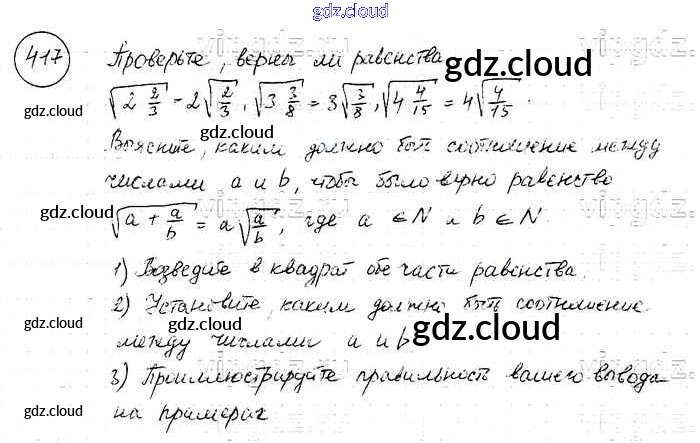 gdz.cloud
417 Проверьте, верны ли равенства
√(2 2/3) = 2√(2/3), √(3 3/8) = 3√(3/8), √(4 4/15) = 4√(4/15).
Выясните, каким должно быть соотношение между
числами a и b, чтобы было верно равенство
√(a + a/b) = a√(a/b), где a ∈ N и b ∈ N.
1) Возведите в квадрат обе части равенства.
2) Установите, каким должно быть соотношение
между числами a и b
3) Проиллюстрируйте правильность вашего вывода
на примерах
gdz.cloud
gdz.cloud
gdz.cloud
gdz.cloud
gdz.cloud
gdz.cloud
gdz.cloud
gdz.cloud
gdz.cloud